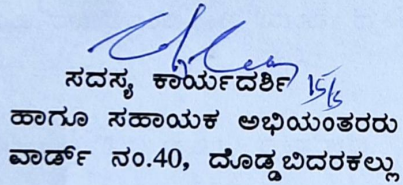 ಸದಸ್ಯ ಕಾರ್ಯದರ್ಶಿ 15/5
ಹಾಗೂ ಸಹಾಯಕ ಅಭಿಯಂತರರು
ವಾರ್ಡ್ ನಂ.40, ದೊಡ್ಡಬಿದರಕಲ್ಲು